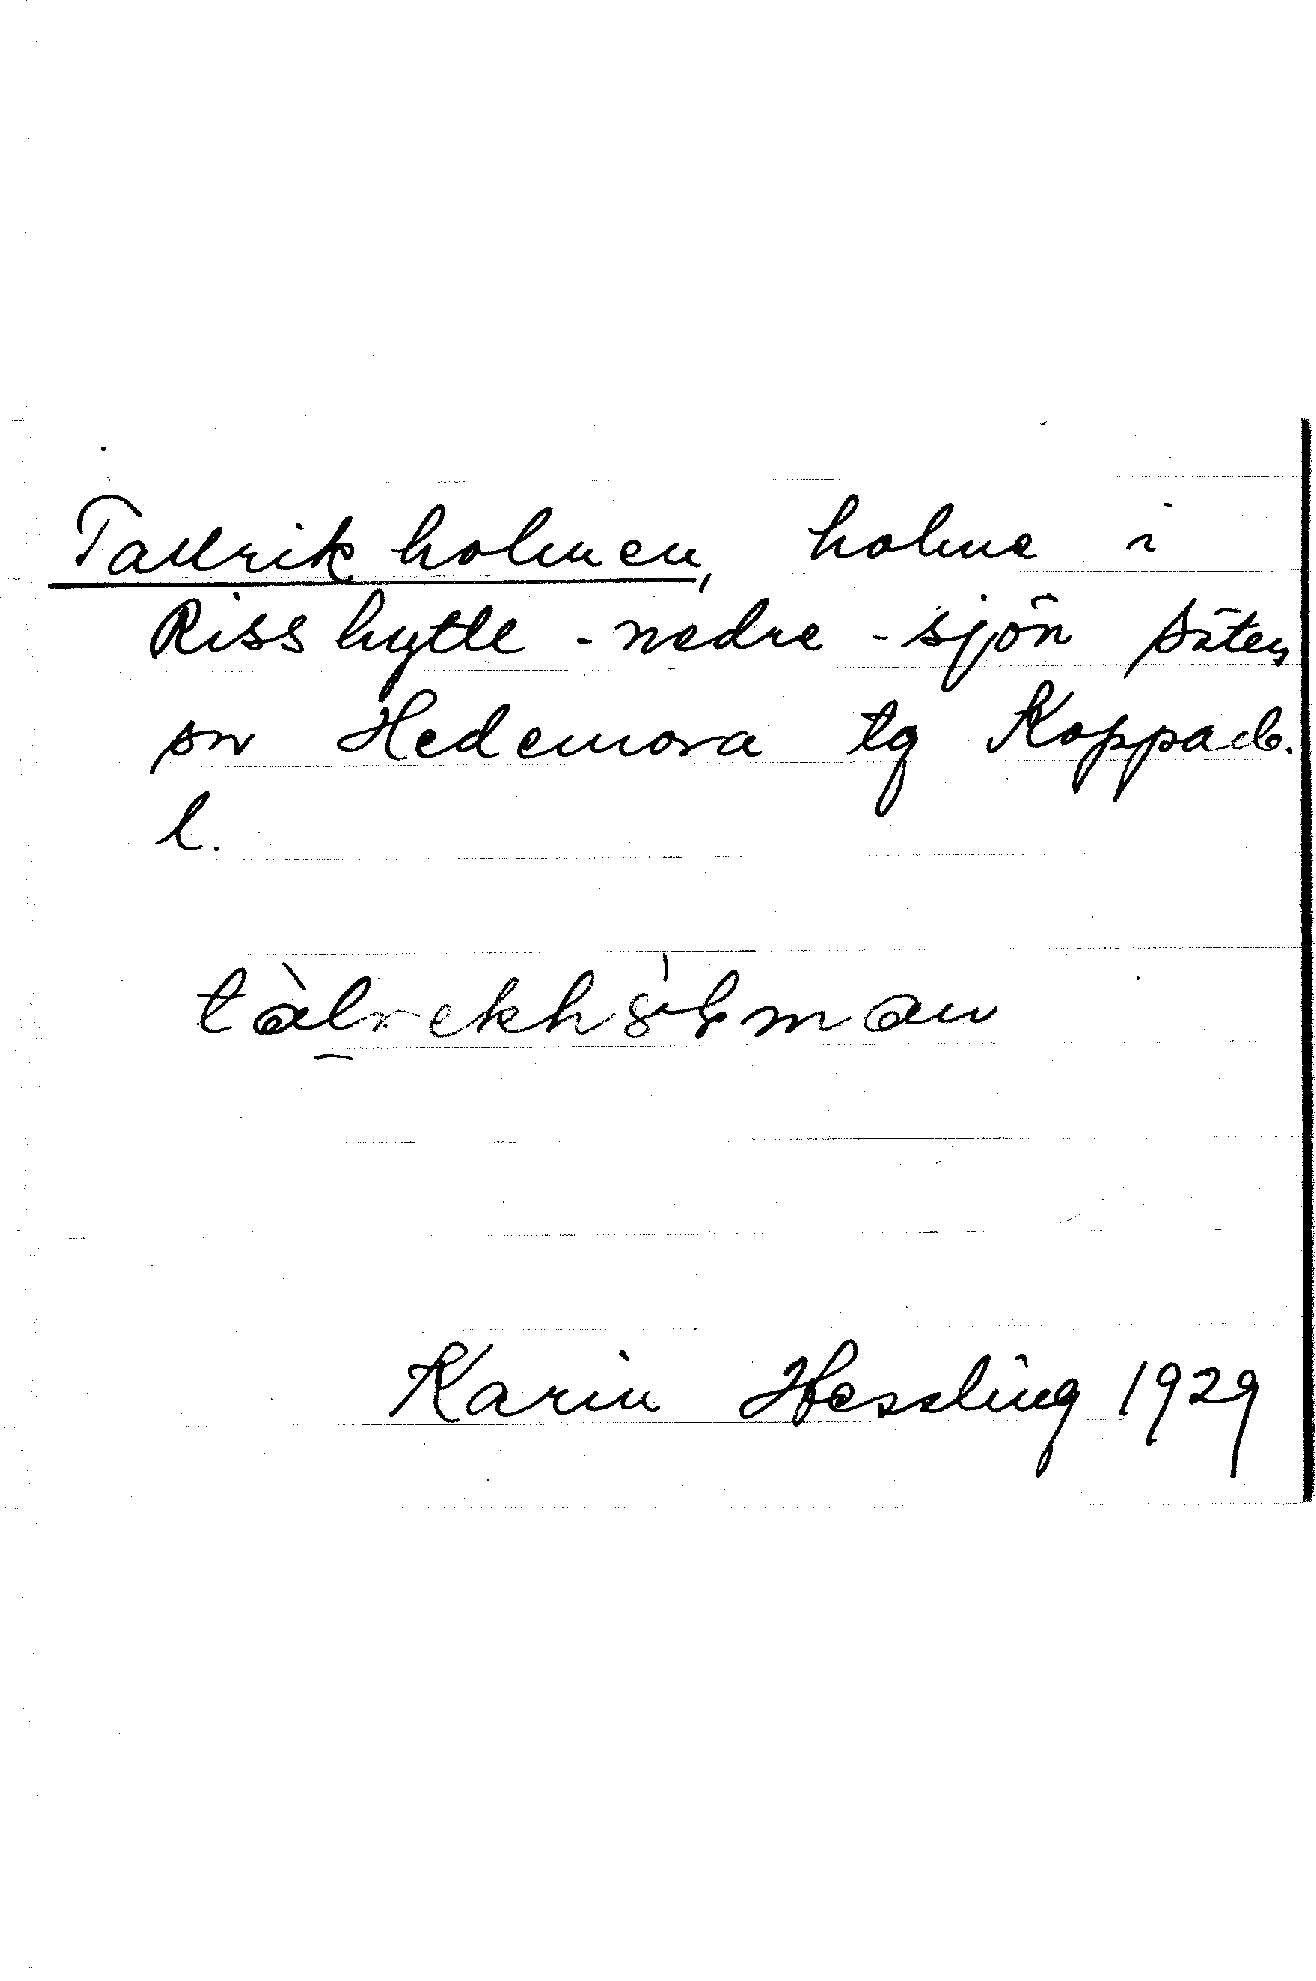 Tallrikholmen, holme i
Risshytte-nedre-sjön Säters
sn Hedemora tg Kopparb.
l.
Karin Hessling 1929